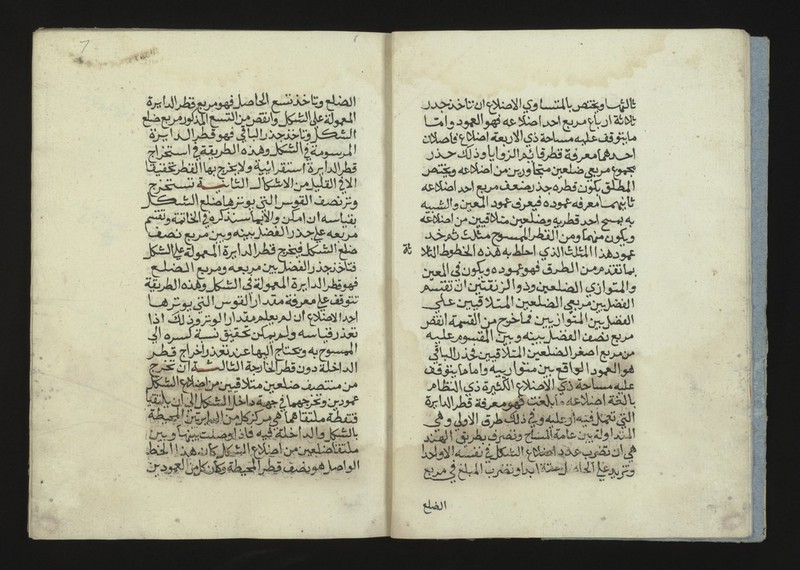 ثالثها ويختص بالمتساوي الاضلاع ان تاخذ جذر
ثلاثة ارباع مربع احد اضلاعه فهو العمود واما
ما يتوقف عليه مساحة ذي الاربعة اضلاع فاصلان
احدهما معرفة قطر قايم الزوايا وذلك جذر
مجموع مربعي ضلعين متجاورين من اضلاعه ويختص
المطلق بكون قطره جذر ضعف مربع احد اضلاعه
ثانيهما معرفه عموده فيعرف عمود المعين والشبيه
به بمسح احد قطريه وضلعين متلاقيين من اضلاعه
ويكون منهما ومن القطر الممسوح مثلث ثم خد
عمود هذا المثلث الذي احاط به هذه الخطوط الثلا
ثة
بما تقدم من الطرق فهو عموده ويكون في المعين
والمتوازي الضلعين وذو الزنقتين ان تقسم
الفضل بين مربعي الضلعين المتلاقيين على
الفضل بين المتوازيين فما خرج من القسمة انقص
مربع نصف الفضل بينه وبين المقسوم عليه
من مربع اصغر الضلعين المتلاقيين فجذر الباقي
هو العمود الواقع بين متوازييه واما ما يتوقف
عليه مساحة ذي الاضلاع الكثيرة ذي النظام
بالغة اضلاعه ما بلغت فهو معرفة قطر الدايرة
التي تعمل فيه او عليه وفي ذلك طرق الاولى وهي
المتداولة بين عامة المساح وتعرف بطريق الهند
هي ان تضرب عدد اضلاع الشكل في نفسه الا واحدا
وتزيد على الحاصل ستة ابدا وتضرب المبلغ في مربع
الضلع
الضلع وتاخذ تسع الحاصل فهو مربع قطر الدايرة
المعمولة على الشكل وانقص من التسع المذكور مربع ضلع
الشكل وتاخذ جذر الباقي فهو قطر الدايرة
المرسومة في الشكل وهذه الطريقة في استخراج
قطر الدايرة استقرائية ولا يخرج بها القطر تحقيقا
الا في القليل من الاشكال الثانية تستخرج
وتر نصف القوس التي يوترها ضلع الشكل
بقياسه ان امكن والا فبما سنذكره في الخاتمة وتقسم
مربعه على جذر الفضل بينه وبين مربع نصف
ضلع الشكل فيخرج قطر الدايرة المعمولة على الشكل
فتاخذ جذر الفضل بين مربعه ومربع الضلع
فهو قطر الدايرة المعمولة في الشكل وهذه الطريقة
تتوقف على معرفة مقدار القوس التي يوترها
احد الاضلاع ان لم يعلم مقدار الوتر وذلك اذا
تعذر قياسه ولم يمكن تحقيق نسبة كسره الى
الممسوح به ويحتاج اليها عند تعذر اخراج قطر
الداخلة دون قطر الخارجة الثالثة ان تخرج
من منتصف ضلعين متلاقيين من اضلاع الشكل
عمودين وتخرجهما في جهة داخل الشكل الى ان يلتقيا
فنقطة ملتقاهما هي مركز كل من الدايرتين المحيطة
بالشكل والداخلة فيه فاذا وصلت بينها وبين
ملتقا ضلعين من اضلاع الشكل كان هذا الخط
الواصل هو نصف قطر المحيطة وكان كل من العمودين